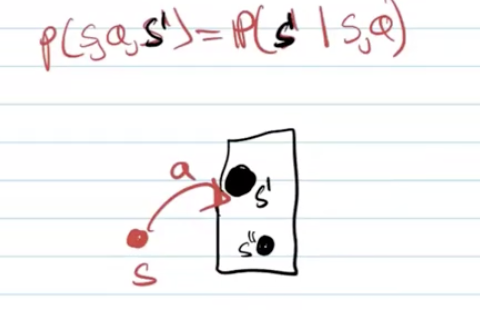 p(s,a,s')=P(s' | s,a)
a
s'
s''
s